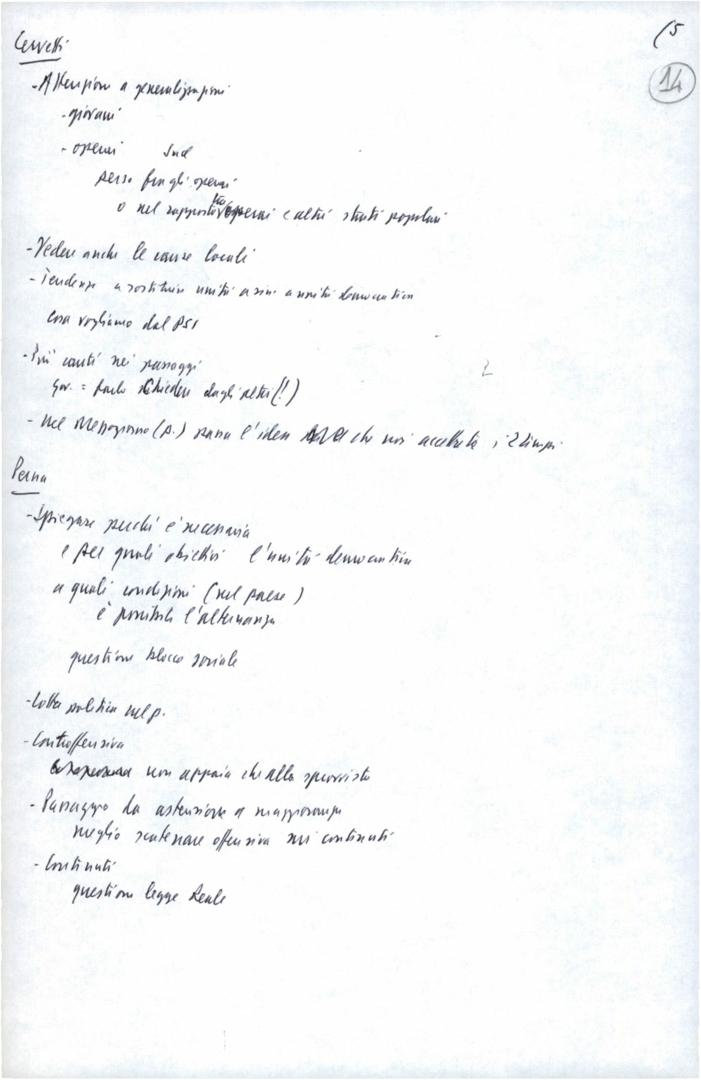 (5
14
Cervetti
- Attenzione a generalizzazioni
- giovani
- operai Sud
perso fra gli operai
o nel rapporto tra operai e altri strati popolari
- Vedere anche le cause locali
- Tendenze a sostituire unità a sin. a unità democratica
cosa vogliamo dal PSI
- Più cauti nei passaggi
gov. = farlo chiedere dagli altri (!)
- Nel Mezzogiorno (p.) l'idea che noi
Perna
- Spiegare perché è necessaria
e per quali obiettivi l'unità democratica
a quali condizioni (nel paese)
è possibile l'alternanza
questione blocco sociale
- Lotta politica nel p.
- Controffensiva
non appaia che alla sprovvista
- Passaggio da astensione a maggioranza
meglio scatenare offensiva sui contenuti
- Contenuti
questione legge Reale